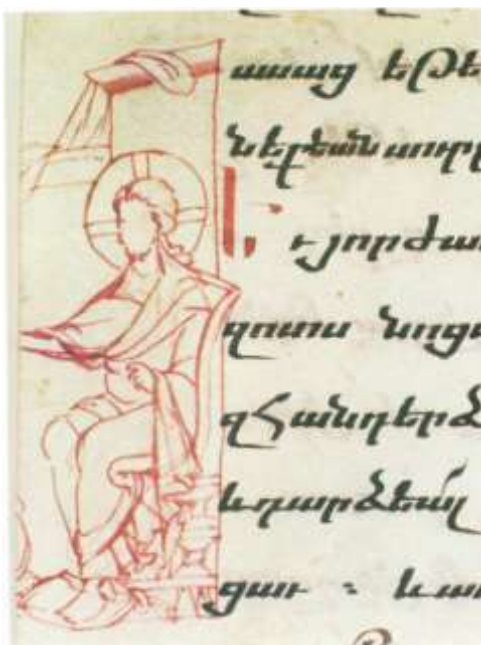 ասաց եթե
նեքեան սուր
Եւ յորժա
զոտս նոց
զհանդերձ
և դարձեալ
ցաւ ։ և